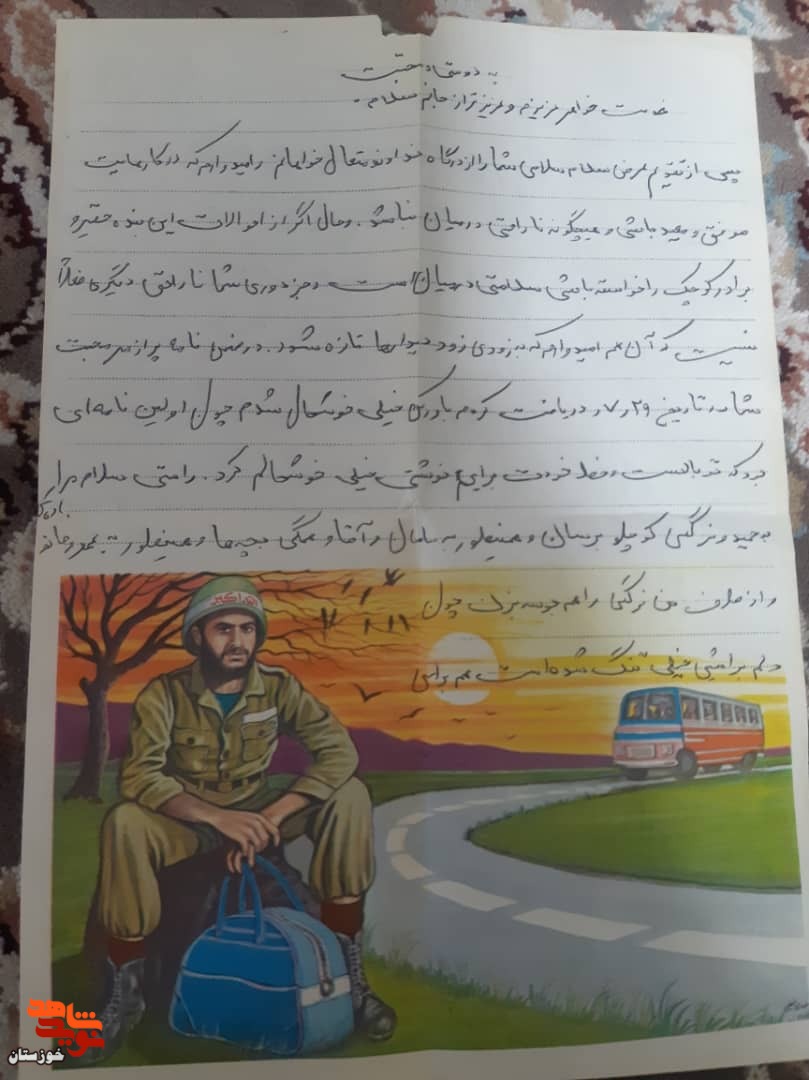 به دوستی و محبت
خدمت خواهر عزیزم و عزیزتر از جانم سلام.
پس از تقدیم عرض سلام سلامتی شما را از درگاه خداوند متعال خواهانم و امیدوارم که در کارهایت
موفق و موید باشی و هیچگونه ناراحتی در میان نباشد. و حال اگر از احوالات این بنده حقیر و
برادر کوچک را خواسته باشی سلامتی در میان است و بجز دوری شما ناراحتی دیگری فعلاً
نیست که آن هم امیدوارم که به زودی زود دیدارها تازه شود. در ضمن نامه پر از مهر و محبت
شما در تاریخ ۲۹ و ۷ و دریافت کردم باور کن خیلی خوشحال شدم چون اولین نامه‌ای
بود که تو با دست و خط خودت برایم نوشتی خیلی خوشحالم کرد. راستی سلام مرا به
حمید و نرگس کوچلو برسان و همینطور به مامان و آقا و همگی بچه‌ها و همینطور
و از طرف من نرگس را هم بوسه بزن چون
دلم برایش خیلی تنگ شده است هم برای
الله اکبر
شاهد
نوید
خوزستان